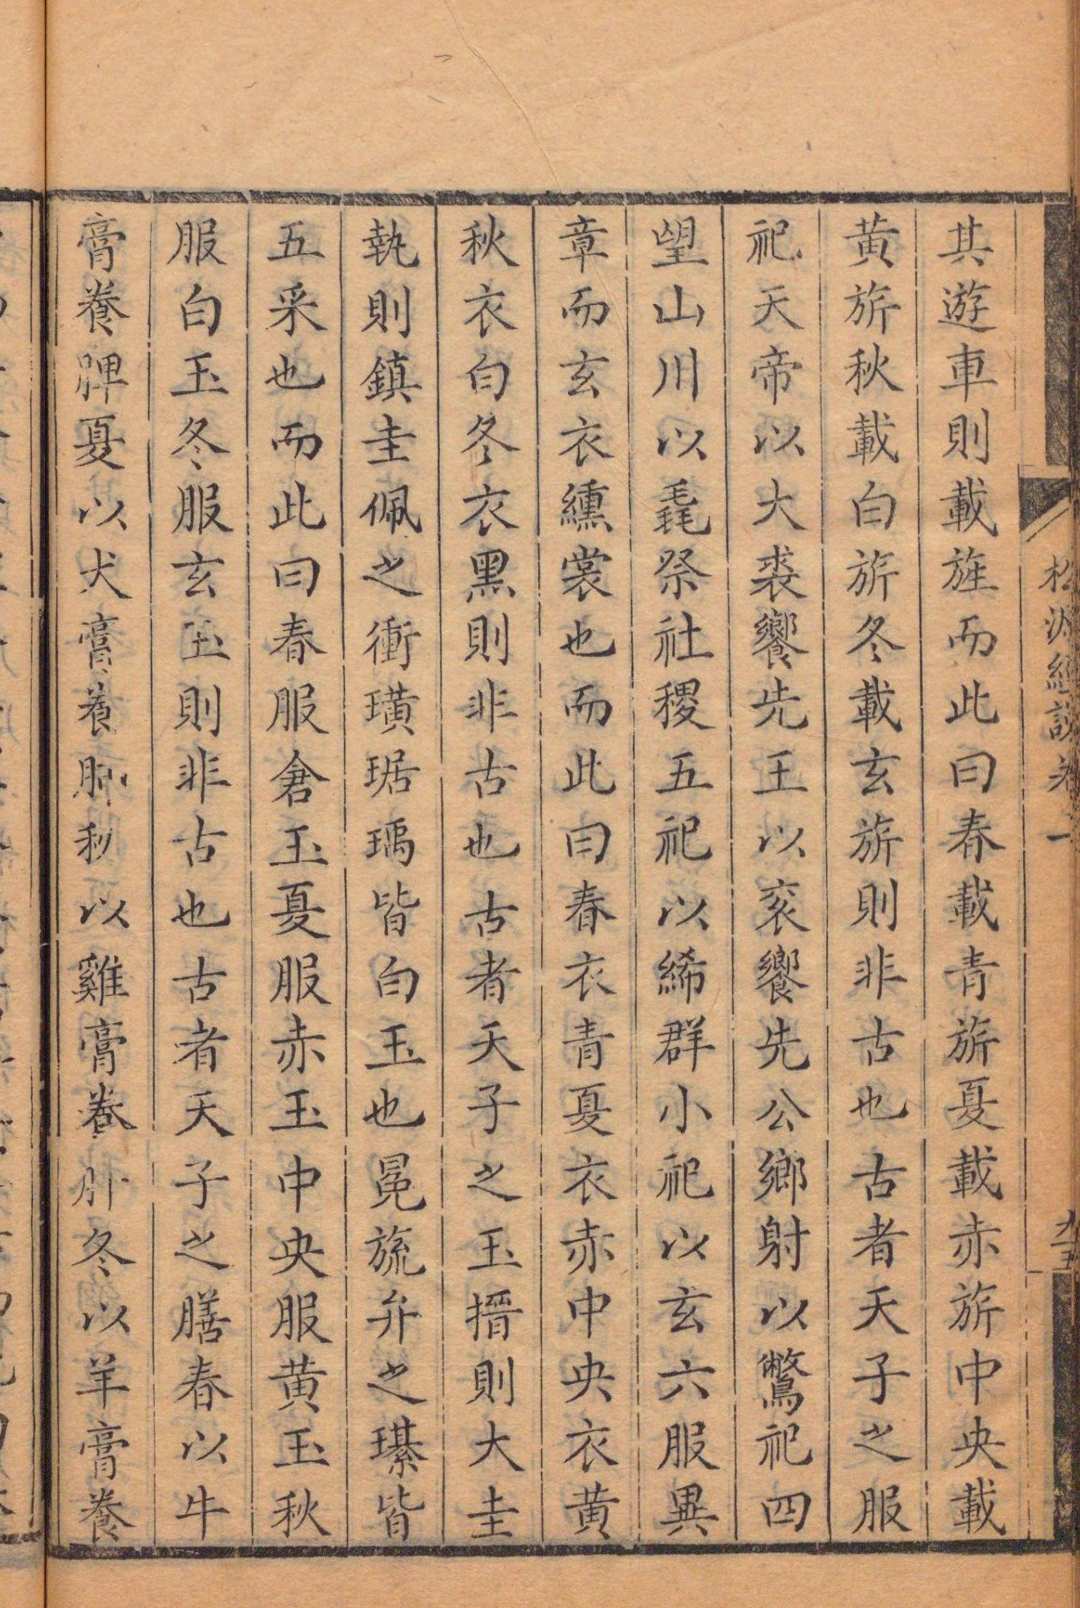 其遊車則載旌而此曰春載青旂夏載赤旂中央載
黄旂秋載白旂冬載玄旂則非古也古者天子之服
祀天帝以大裘饗先王以衮饗先公鄉射以鷩祀四
望山川以毳祭社稷五祀以絺群小祀以玄六服異
章而玄衣纁裳也而此曰春衣青夏衣赤中央衣黄
秋衣白冬衣黑則非古也古者天子之玉搢則大圭
執則鎮圭佩之衝璜琚瑀皆白玉也冕旒弁之璂皆
五采也而此曰春服倉玉夏服赤玉中央服黄玉秋
服白玉冬服玄玉則非古也古者天子之膳春以牛
膏養脾夏以犬膏養肺秋以雞膏養肝冬以羊膏養
松源經說卷一